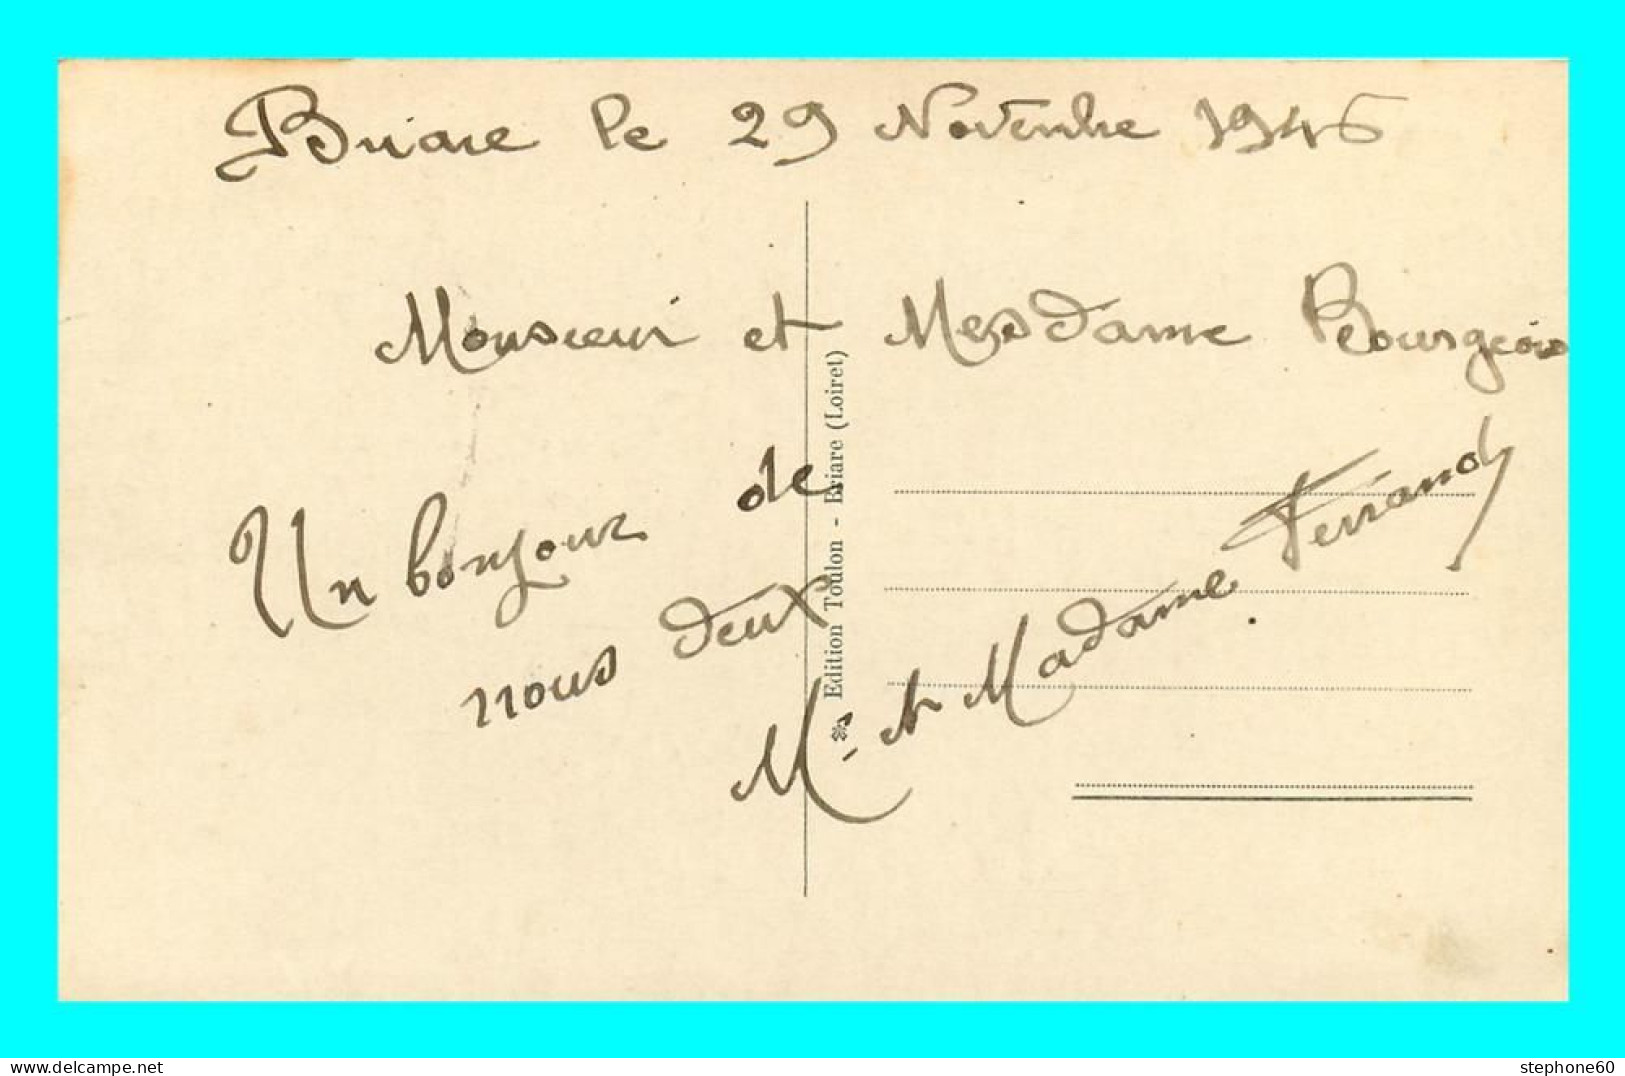 Briare le 29 Novembre 1946
Monsieur et Mesdame Bourgeois
Un bonjour de
nous deux
Mr et Madame Ferrand
Edition Toulon - Briare (Loiret)
www.delcampe.net
stephone60